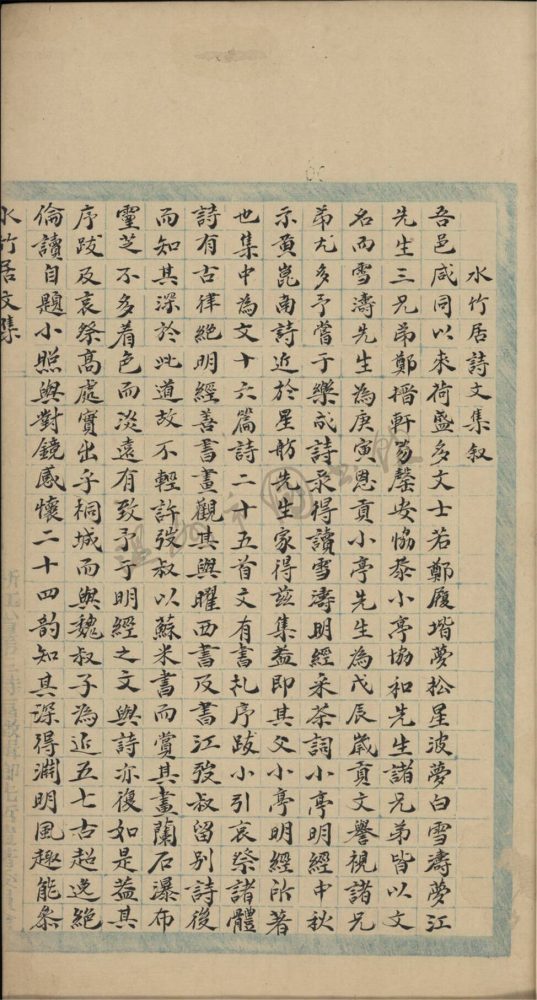 水竹居詩文集叙
吾邑咸同以來荷盛多文士若鄭履堦夢松星波夢白雪濤夢江
先生三兄弟鄭搢軒易馨安協恭小亭協和先生諸兄弟皆以文
名而雪濤先生為庚寅恩貢小亭先生為戊辰歲貢文譽視諸兄
弟尤多予嘗于樂成詩录得讀雪濤明經采茶詞小亭明經中秋
示黃崑南詩近於星舫先生家得兹集葢即其父小亭明經所著
也集中為文十六篇詩二十五首文有書札序跋小引哀祭諸體
詩有古律絕明經善書畫觀其與曜西書及書江弢叔留别詩後
而知其深於此道故不輕許弢叔以蘇米書而賞其畫蘭石瀑布
靈芝不多着色而淡遠有致予于明經之文與詩亦復如是葢其
序跋及哀祭高處實出乎桐城而與魏叔子為近五七古超逸絕
倫讀自題小照與對鏡感懷二十四韵知其深得淵明風趣能条
水竹居文集